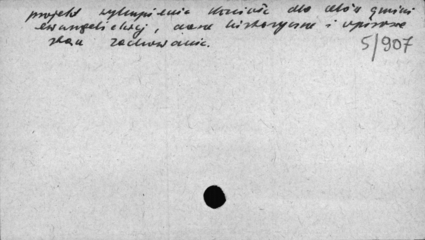 projekt wykupienia kościoła dla celów gminy
ewangelickiej, dane historyczne i opisowe
stan zachowania.
5/907